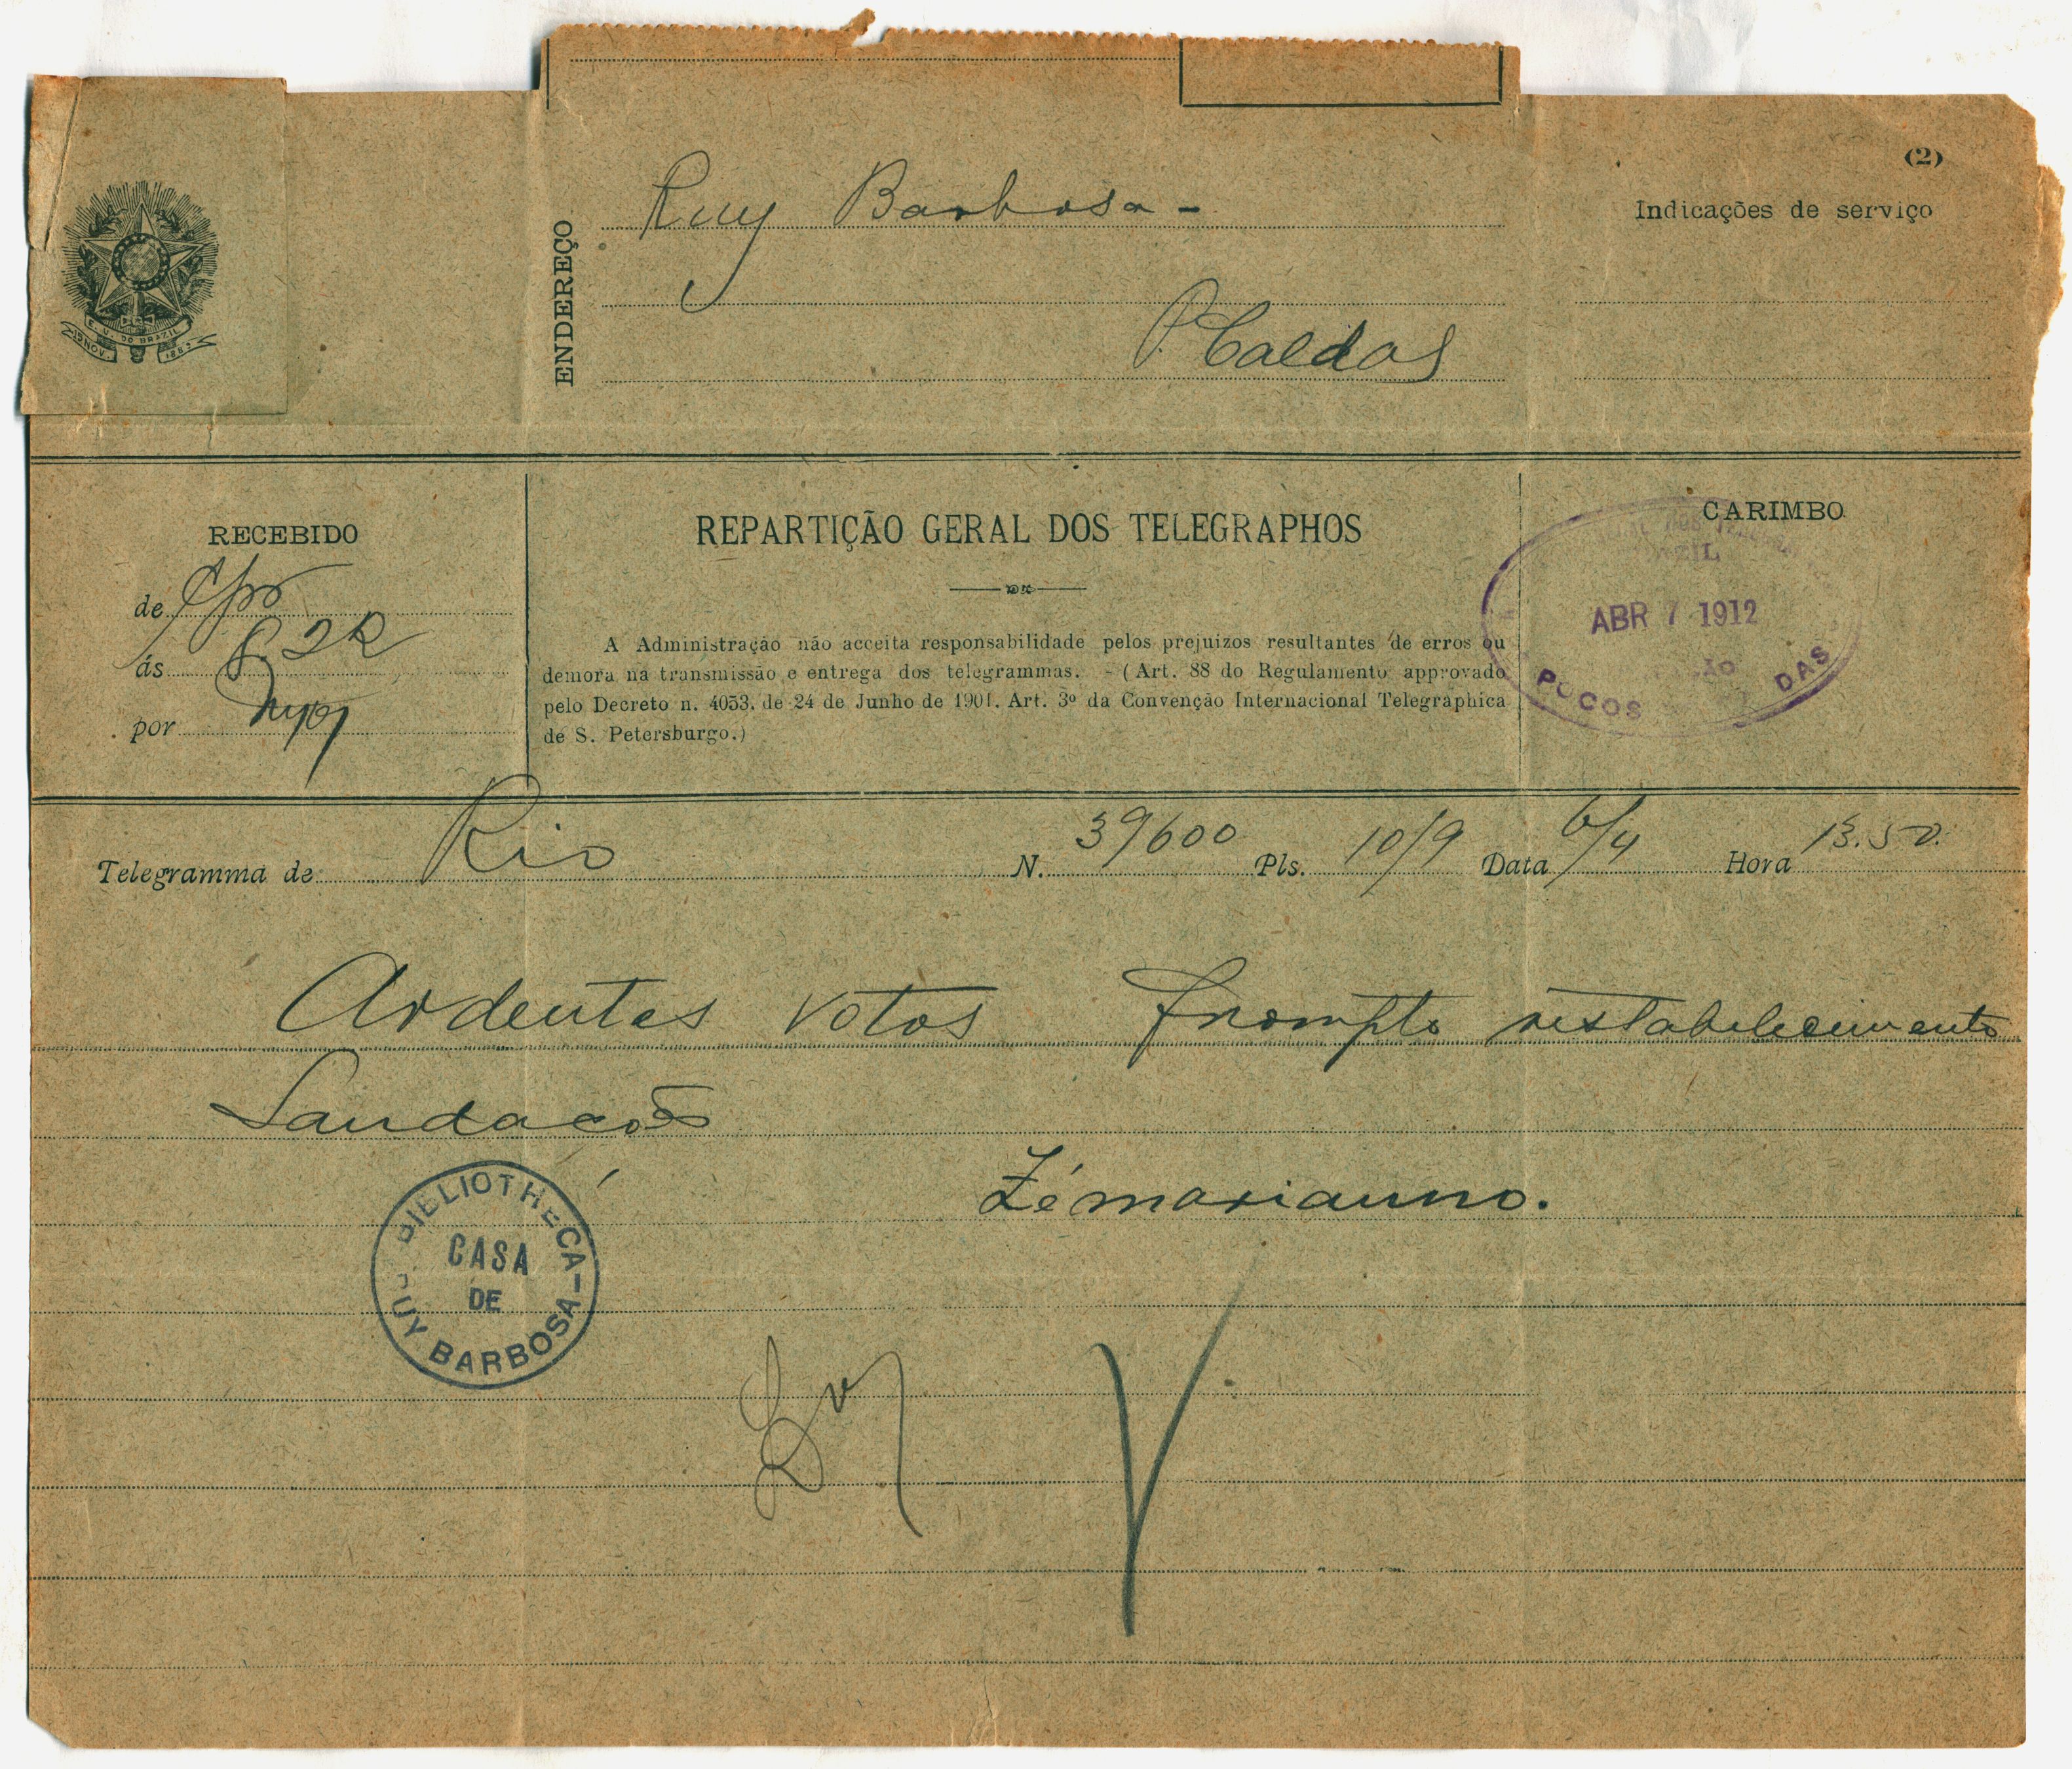 (2)
Indicações de serviço
ENDEREÇO
Ruy Barbosa -
P. Caldas
E. U. DO BRAZIL
15 NOV. 1889
RECEBIDO
de
ás
por
REPARTIÇÃO GERAL DOS TELEGRAPHOS
A Administração não acceita responsabilidade pelos prejuizos resultantes de erros ou
demora na transmissão e entrega dos telegrammas. - (Art. 88 do Regulamento approvado
pelo Decreto n. 4053, de 24 de Junho de 1901. Art. 3º da Convenção Internacional Telegraphica
de S. Petersburgo.)
CARIMBO
ABR 7 1912
POCOS DAS
Telegramma de Rio N. 39600 Pls. 10/9 Data 6/4 Hora 13.50.
Ardentes votos prompto restabelecimento
Saudacões
Zémarianno.
BIBLIOTHECA
CASA
DE
UY BARBOSA